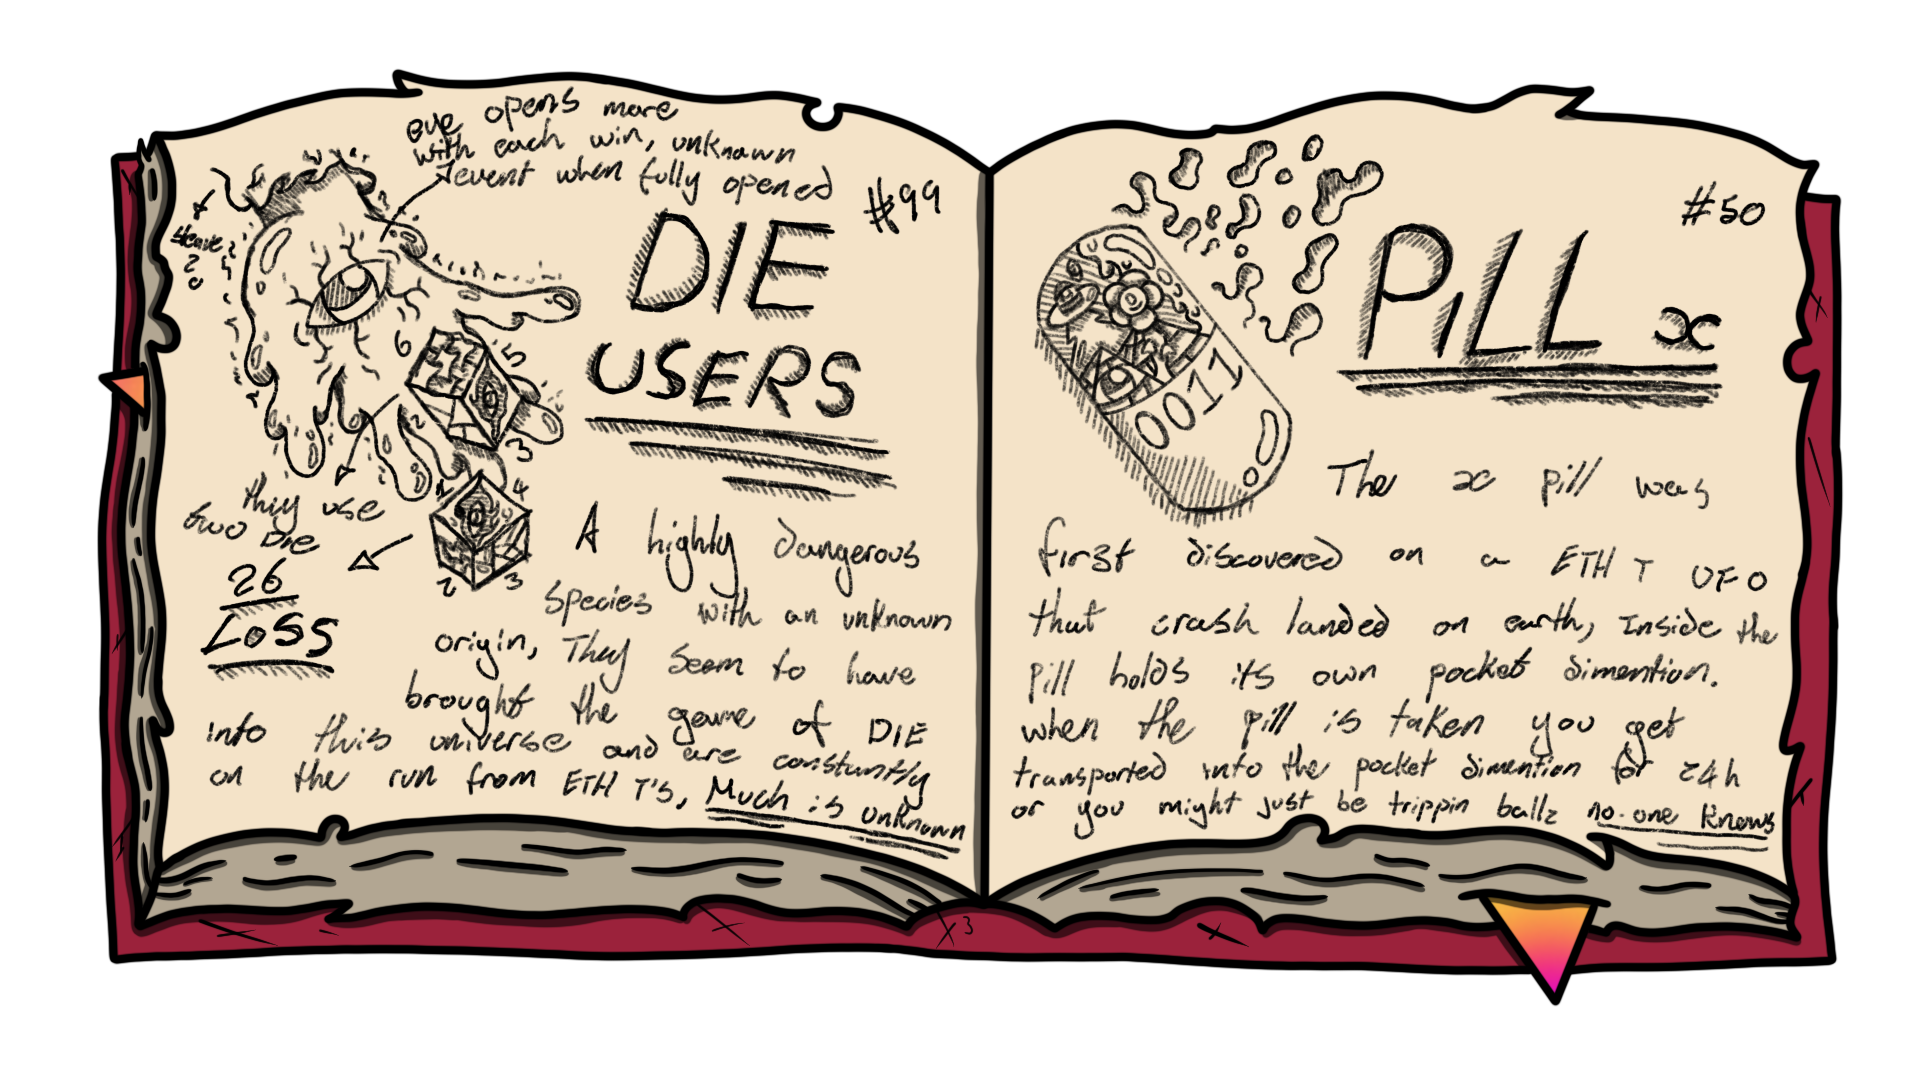 eye opens more
with each win, unknown
event when fully opened
#99
DIE
USERS
6
5
2
3
4
2
3
they use
two DIE
26
LOSS
A highly dangerous
species with an unknown
origin, They seem to have
brought the game of DIE
into this universe and are constantly
on the run from ETH T's, Much is unknown
#50
PiLL x
0011
The x pill was
first discovered on a ETH T UFO
that crash landed on earth, Inside the
pill holds its own pocket dimention.
when the pill is taken you get
transported into the pocket dimention for 24h
or you might just be trippin ballz no-one knows
3